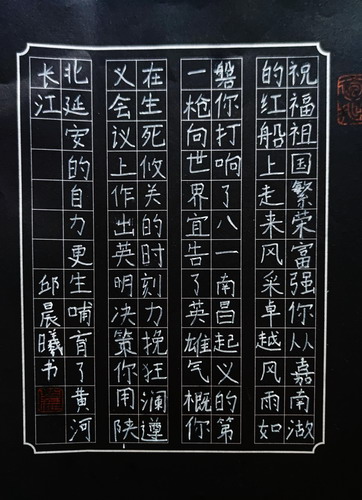 祝福祖国繁荣富强你从嘉南湖
的红船上走来风采卓越风雨如
磐你打响了八一南昌起义的第
一枪向世界宣告了英雄气概你
在生死攸关的时刻力挽狂澜遵
义会议上作出英明决策你用陕
北延安的自力更生哺育了黄河
长江 邱晨曦书